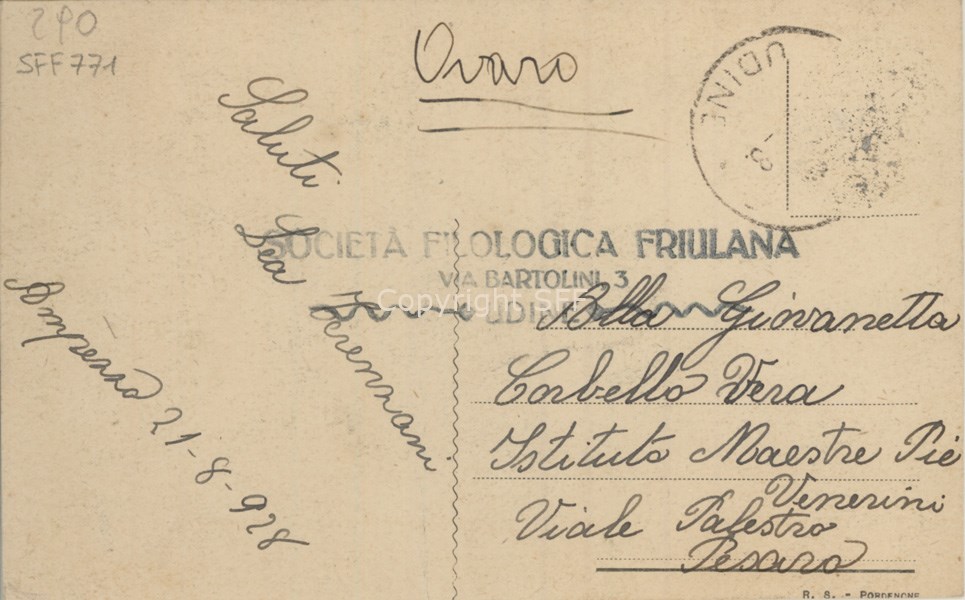 2PO
SFF 771
Ovaro
UDINE
8.
Saluti
Lea
Ampezzo 21-8-928
SOCIETÀ FILOLOGICA FRIULANA
VIA BARTOLINI, 3
UDINE
Copyright SFF
Alla Giovanetta
Corbello Vera
Istituto Maestre Pie
Venerini
Viale Palestro
Pesaro
R. 8. - PORDENONE